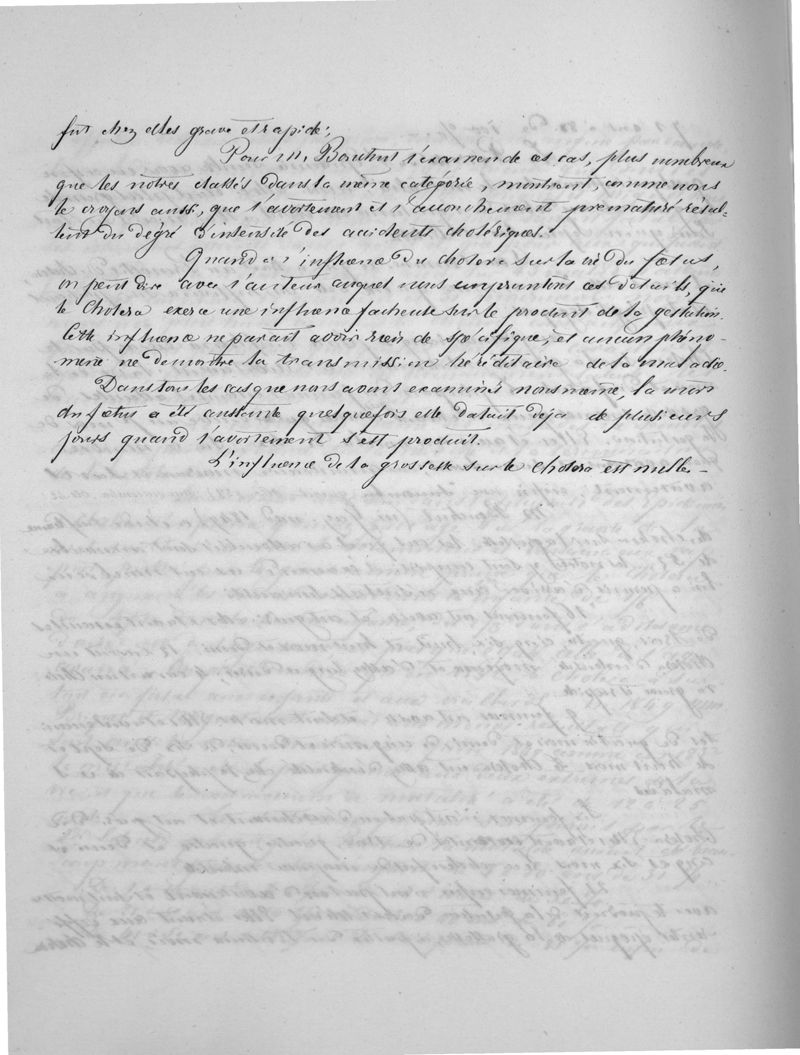 fut chez elles grave et rapide;
Pour M. Bouchut l'examen de ces cas, plus nombreux
que les notres classés dans la même catégorie, montrent, comme nous
le croyons aussi, que l'avortement et l'accouchement prematuré résul-
tent du dégré d'intensité des accidents cholériques.
Quand à l'influence du cholera sur la vie du fœtus,
on peut dire avec l'auteur auquel nous empruntons ces détails, que
le Cholera exerce une influence facheuse sur le produit de la gestation.
Cette influence ne parait avoir rien de spécifique, et aucun phéno-
mene ne demontre la transmission héréditaire de la maladie.
Dans tous les cas que nous avons examinés nous même, la mort
du fœtus a été constante quelquefois elle datait deja de plusieurs
jours quand l'avortement s'est produit.
L'influence de la grossesse sur le cholera est nulle -